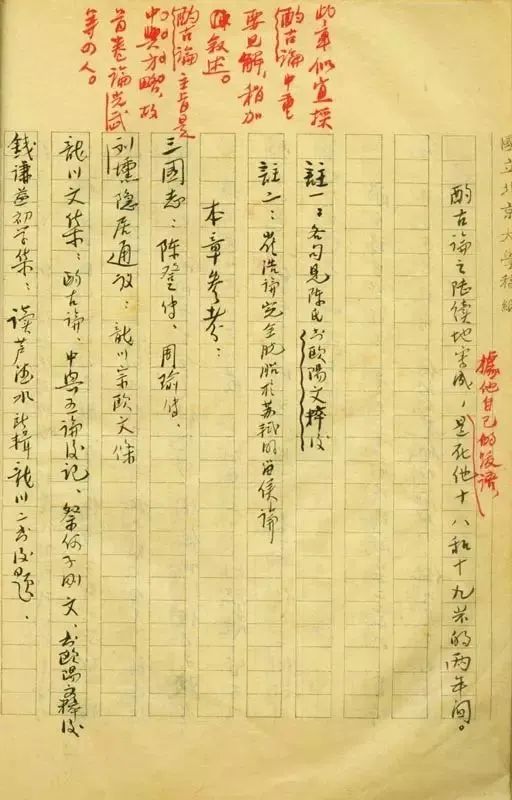 國立北京大學稿紙
據他自己的後語
酌古論之陸續地寫成，是在他十八和十九歲的兩年間。
註一：各句見陳氏書歐陽文粹後
註二：崔浩論完全脫胎於蘇軾的留侯論
本章參考：
三國志：陳登傳、周瑜傳、
劉壎隱居通議：龍川宗歐文條
龍川文集：酌古論、中興五論後記、祭何子剛文、書歐陽文粹後
錢謙益初學集：讀芦德水所輯龍川二書後題、
此章似宜採
酌古論中重
要見解，稍加
敘述。
酌古論主旨是
中興方略，故
首卷論光武
等四人。